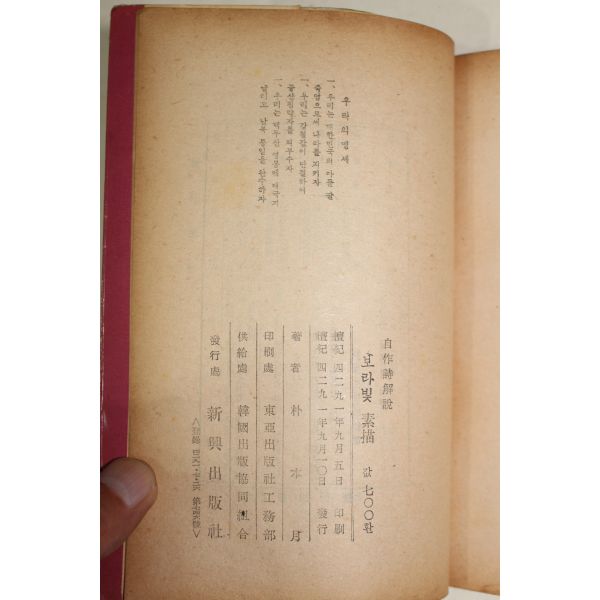 우리의 맹세
一、우리는 대한민국의 아들 딸
죽엄으로써 나라를 지키자
一、우리는 강철같이 단결하여
공산침략자를 쳐부수자
一、우리는 백두산 영봉에 태극기
날리고 남북 통일을 완수하자
自作詩解說
보라빛 素描 값 七〇〇환
檀紀 四二九一年九月五日 印刷
檀紀 四二九一年九月一〇日 發行
著者 朴木月
印刷處 東亞出版社工務部
供給處 韓國出版協同組合
發行處 新興出版社